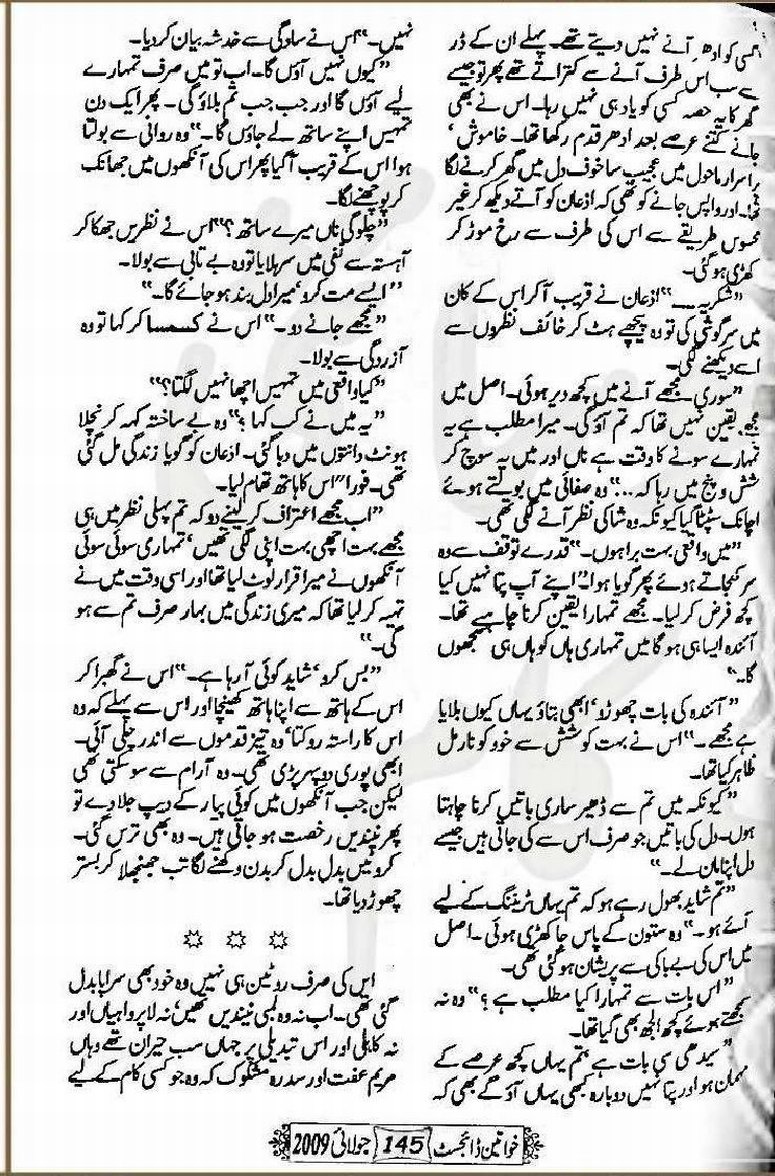 کسی کو ادھر آنے نہیں دیتے تھے۔ پہلے ان کے ڈر
سے سب اس طرف آنے سے کتراتے تھے پھر تو جیسے
گھر کا یہ حصہ کسی کو یاد ہی نہیں رہا۔ اس نے بھی
جانے کتنے عرصے بعد ادھر قدم رکھا تھا۔ خاموش'
پراسرار ماحول میں عجیب سا خوف دل میں گھر کرنے لگا
تھا۔ اور واپس جانے کو تھی کہ اذعان کو آتے دیکھ کر غیر
محسوس طریقے سے اس کی طرف سے رخ موڑ کر
کھڑی ہو گئی۔
"شکریہ ــــ" اذعان نے قریب آکر اس کے کان
میں سرگوشی کی تو وہ پیچھے ہٹ کر خائف نظروں سے
اسے دیکھنے لگی۔
"سوری مجھے آنے میں کچھ دیر ہوئی۔ اصل میں
مجھے یقین نہیں تھا کہ تم آؤ گی۔ میرا مطلب ہے یہ
تمہارے سونے کا وقت ہے ناں اور میں یہ سوچ کر
شش و پنج میں رہا کہ..." وہ صفائی میں بولتے ہوئے
اچانک سٹپٹا گیا کیونکہ وہ شاکی نظر آنے لگی تھی۔
"میں واقعی بہت برا ہوں۔" قدرے توقف سے وہ
سر کھجاتے ہوئے پھر گویا ہوا۔ "اپنے آپ پتا نہیں کیا
کچھ فرض کر لیا۔ مجھے تمہارا یقین کرنا چاہیے تھا۔
آئندہ ایسا ہی ہو گا میں تمہاری ہاں کو ہاں ہی سمجھوں
گا۔"
"آئندہ کی بات چھوڑو' ابھی بتاؤ یہاں کیوں بلایا
ہے مجھے۔" اس نے بہت کوشش سے خود کو نارمل
ظاہر کیا تھا۔
"کیونکہ میں تم سے ڈھیر ساری باتیں کرنا چاہتا
ہوں۔ دل کی باتیں جو صرف اس سے کی جاتی ہیں جسے
دل اپنا مان لے۔"
"تم شاید بھول رہے ہو کہ تم یہاں ٹریننگ کے لیے
آئے ہو۔" وہ ستون کے پاس جا کھڑی ہوئی۔ اصل
میں اس کی بے باکی سے پریشان ہو گئی تھی۔
"اس بات سے تمہارا کیا مطلب ہے؟" وہ نہ
سمجھتے ہوئے کچھ الجھ بھی گیا تھا۔
"سیدھی سی بات ہے' تم یہاں کچھ عرصے کے
مہمان ہو اور پتا نہیں دوبارہ کبھی یہاں آؤ گے بھی کہ
نہیں۔" اس نے سادگی سے خدشہ بیان کر دیا۔
"کیوں نہیں آؤں گا۔ اب تو میں صرف تمہارے
لیے آؤں گا اور جب جب تم بلاؤ گی۔ پھر ایک دن
تمہیں اپنے ساتھ لے جاؤں گا۔" وہ روانی سے بولتا
ہوا اس کے قریب آگیا پھر اس کی آنکھوں میں جھانک
کر پوچھنے لگا۔
"چلو گی ناں میرے ساتھ؟" اس نے نظریں جھکا کر
آہستہ سے نفی میں سر ہلایا تو وہ بے تابی سے بولا۔
"ایسے مت کرو' میرا دل بند ہو جائے گا۔"
"مجھے جانے دو۔" اس نے کسمسا کر کہا تو وہ
آزردگی سے بولا۔
"کیا واقعی میں تمہیں اچھا نہیں لگتا؟"
"یہ میں نے کب کہا؟" وہ بے ساختہ کہہ کر نچلا
ہونٹ دانتوں میں دبا گئی۔ اذعان کو گویا زندگی مل گئی
تھی۔ فوراً اس کا ہاتھ تھام لیا۔
"اب مجھے اعتراف کر لینے دو کہ تم پہلی نظر میں ہی
مجھے بہت اچھی بہت اپنی لگی تھیں' تمہاری سوئی سوئی
آنکھوں نے میرا قرار لوٹ لیا تھا اور اسی وقت میں نے
تہیہ کر لیا تھا کہ میری زندگی میں بہار صرف تم سے ہو
گی۔"
"بس کرو' شاید کوئی آ رہا ہے۔" اس نے گھبرا کر
اس کے ہاتھ سے اپنا ہاتھ کھینچا اور اس سے پہلے کہ وہ
اس کا راستہ روکتا' وہ تیز قدموں سے اندر چلی آئی۔
ابھی پوری دوپہر پڑی تھی۔ وہ آرام سے سو سکتی تھی
لیکن جب آنکھوں میں کوئی پیار کے دیپ جلا دے تو
پھر نیندیں رخصت ہو جاتی ہیں۔ وہ بھی ترس گئی۔
کروٹیں بدل بدل کر بدن دکھنے لگا تب جھنجلا کر بستر
چھوڑ دیا تھا۔
☼ ☼ ☼
اس کی صرف روٹین ہی نہیں وہ خود بھی سراپا بدل
گئی تھی۔ اب نہ وہ لمبی نیندیں تھیں' نہ لاپرواہیاں اور
نہ کاہلی اور اس تبدیلی پر جہاں سب حیران تھے وہاں
مریم عفت اور سدرہ مشکوک کہ وہ جو کسی کام کے لیے
خواتین ڈائجسٹ 145 جولائی 2009